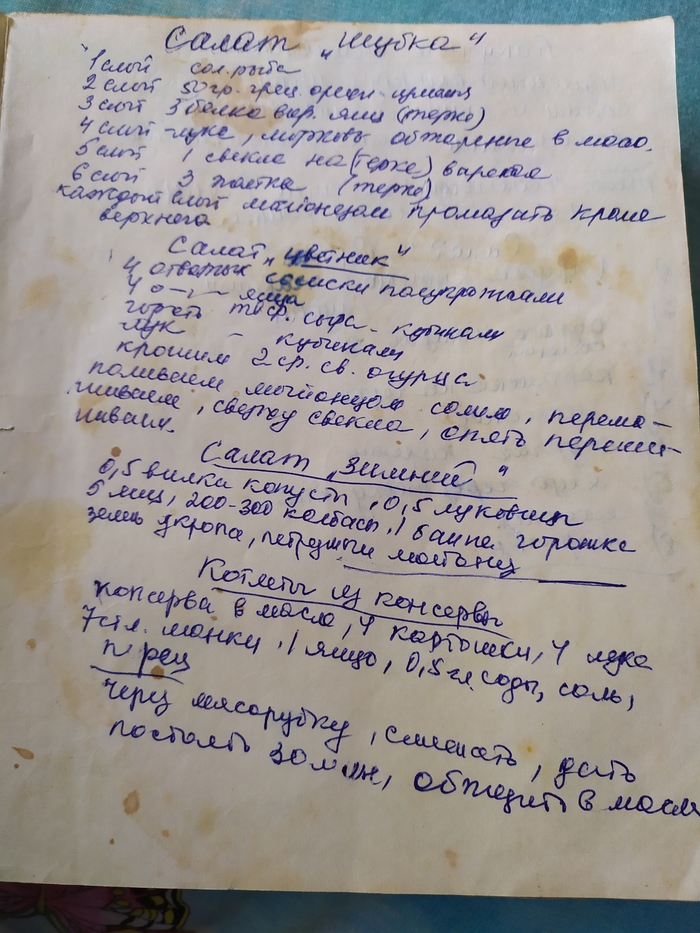 Салат „Шубка"
1 слой сол. рыба
2 слой 50 гр. грец. орехи-
3 слой 3 белка вар. яиц (терко)
4 слой - лук, морковь обжарение в масо.
5 слой 1 свекла на (терке) вареная
6 слой 3 желтка (терко)
каждый слой майонезом промазать кроме
верхнего
Салат „Цветник"
4 отварных сосиски полукружками
4 яйца
горсть тв. сыра - кубиками
лук - кубиками
крошим 2 ср. св. огурца
поливаем майонезом солим, переме-
шиваем, сверху свекла, опять переме-
шиваем.
Салат „Зимний"
0,5 вилка капусты, 0,5 луковицы
5 яиц, 200-300 колбасы, 1 банка горошка
зелень укропа, петрушки майонез
Котлеты из консервы
консерва в масле, 4 картошки, 4 лука
7 ст. л. манки, 1 яйцо, 0,5 ч.л. соды, соль,
перец
через мясорубку, смешать, дать
постоять 30 мин, обжарить в масле